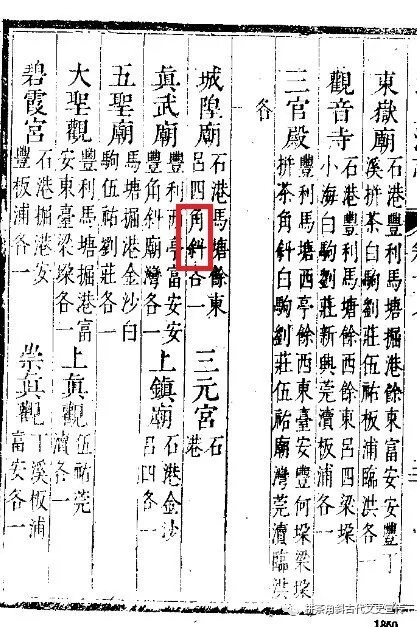 東嶽廟 豐利馬塘西餘東富安安豐丁
溪拼茶白駒劉莊伍祐板浦臨洪各一
觀音寺 石港豐利馬塘西餘東呂四梁垛
小海白駒劉莊新興莞瀆板浦各一
三官殿 豐利馬塘西亭餘西東臺安豐何垛梁垛
拼茶角斜白駒劉莊伍祐廟灣莞瀆臨洪
各
城隍廟 石港馬塘餘東
呂四角斜各一
三元宮 石
港
眞武廟 豐利西亭富安安
豐角斜廟灣各一
上鎮廟 石港金沙
呂四各一
五聖廟 馬塘掘港金沙白
駒伍祐劉莊各一
大聖觀 豐利馬塘掘港富
安東臺梁垛各一
上眞觀 伍祐莞
瀆各一
碧霞宮 石港掘港安
豐板浦各一
崇眞觀 丁溪板浦
富安各一
1850